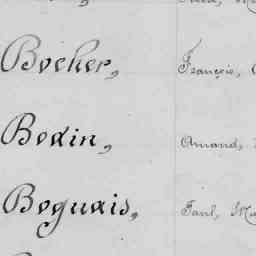 Bocher, François,
Bodin, Amand,
Boguais, Paul, Ma